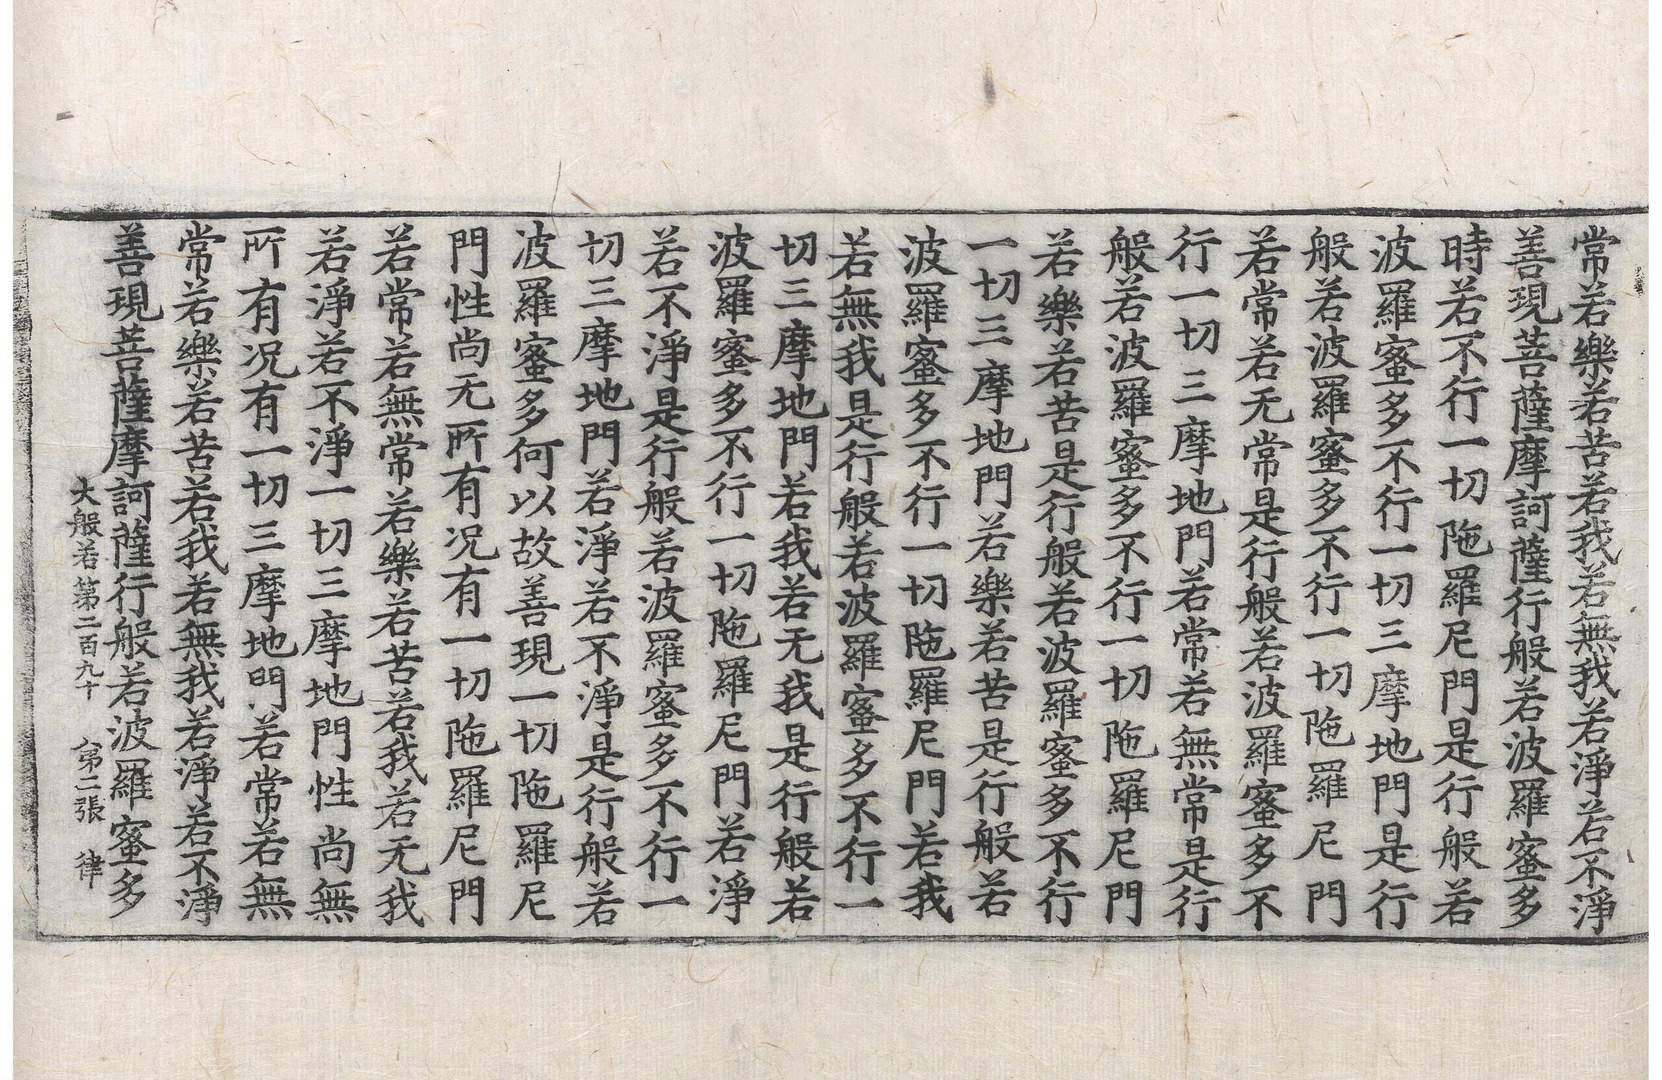 常若樂若苦若我若無我若淨若不淨
善現菩薩摩訶薩行般若波羅蜜多
時若不行一切陁羅尼門是行般若
波羅蜜多不行一切三摩地門是行
般若波羅蜜多不行一切陁羅尼門
若常若无常是行般若波羅蜜多不
行一切三摩地門若常若無常是行
般若波羅蜜多不行一切陁羅尼門
若樂若苦是行般若波羅蜜多不行
一切三摩地門若樂若苦是行般若
波羅蜜多不行一切陁羅尼門若我
若無我是行般若波羅蜜多不行一
切三摩地門若我若无我是行般若
波羅蜜多不行一切陁羅尼門若淨
若不淨是行般若波羅蜜多不行一
切三摩地門若淨若不淨是行般若
波羅蜜多何以故善現一切陁羅尼
門性尚无所有况有一切陁羅尼門
若常若無常若樂若苦若我若无我
若淨若不淨一切三摩地門性尚無
所有况有一切三摩地門若常若無
常若樂若苦若我若無我若淨若不淨
善現菩薩摩訶薩行般若波羅蜜多
大般若第二百九十 第二張 律